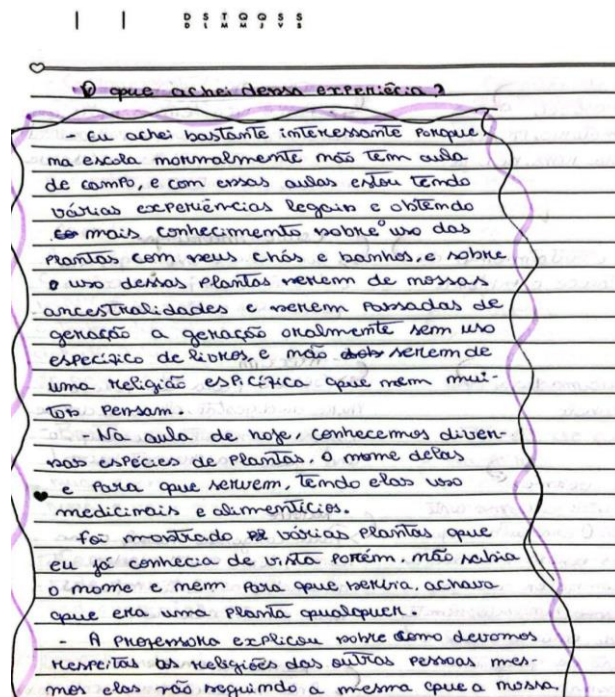 D S T Q Q S S
D L M M J V S
O que achei dessa experiêcia?
- Eu achei bastante interessante porque
na escola normalmente não tem aula
de campo, e com essas aulas estou tendo
várias experiências legais e obtendo
mais conhecimento sobre o uso das
plantas com seus chás e banhos, e sobre
o uso dessas plantas serem de nossas
ancestralidades e serem passadas de
geração a geração oralmente sem uso
específico de livros, e não serem de
uma religião espicífica que nem mui-
tos pensam.
- Na aula de hoje, conhecemos diver-
sas espécies de plantas, o nome delas
e para que servem, tendo elas uso
medicinais e alimentícios.
foi mostrado várias plantas que
eu já conhecia de vista porém, não sabia
o nome e nem para que servia, achava
que era uma planta qualquer.
- A professora explicou sobre como devemos
respeitas as religiões das outras pessoas mes-
mos elas não seguindo a mesma que a nossa